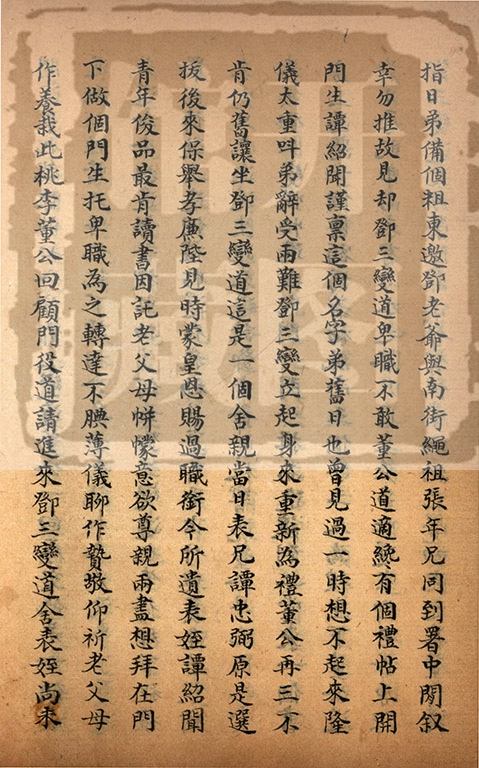 指日弟備個粗東邀鄧老爺與南街繩祖張年兄同到署中閒叙
幸勿推故見却鄧三變道卑職不敢董公道適纔有個禮帖上開
門生譚紹聞謹稟這個名字弟舊日也曾見過一時想不起來隆
儀太重呌弟辭受兩難鄧三變立起身來重新為禮董公再三不
肯仍舊讓坐鄧三變道這是一個舍親當日表兄譚忠弼原是選
拔後來保舉孝廉陛見時蒙皇恩賜過職銜今所遺表姪譚紹聞
青年俊品最肯讀書因託老父母帡幪意欲尊親兩盡想拜在門
下做個門生托卑職為之轉達不腆薄儀聊作贄敬仰祈老父母
作養栽此桃李董公回顧門役道請進來鄧三變道舍表姪尚未